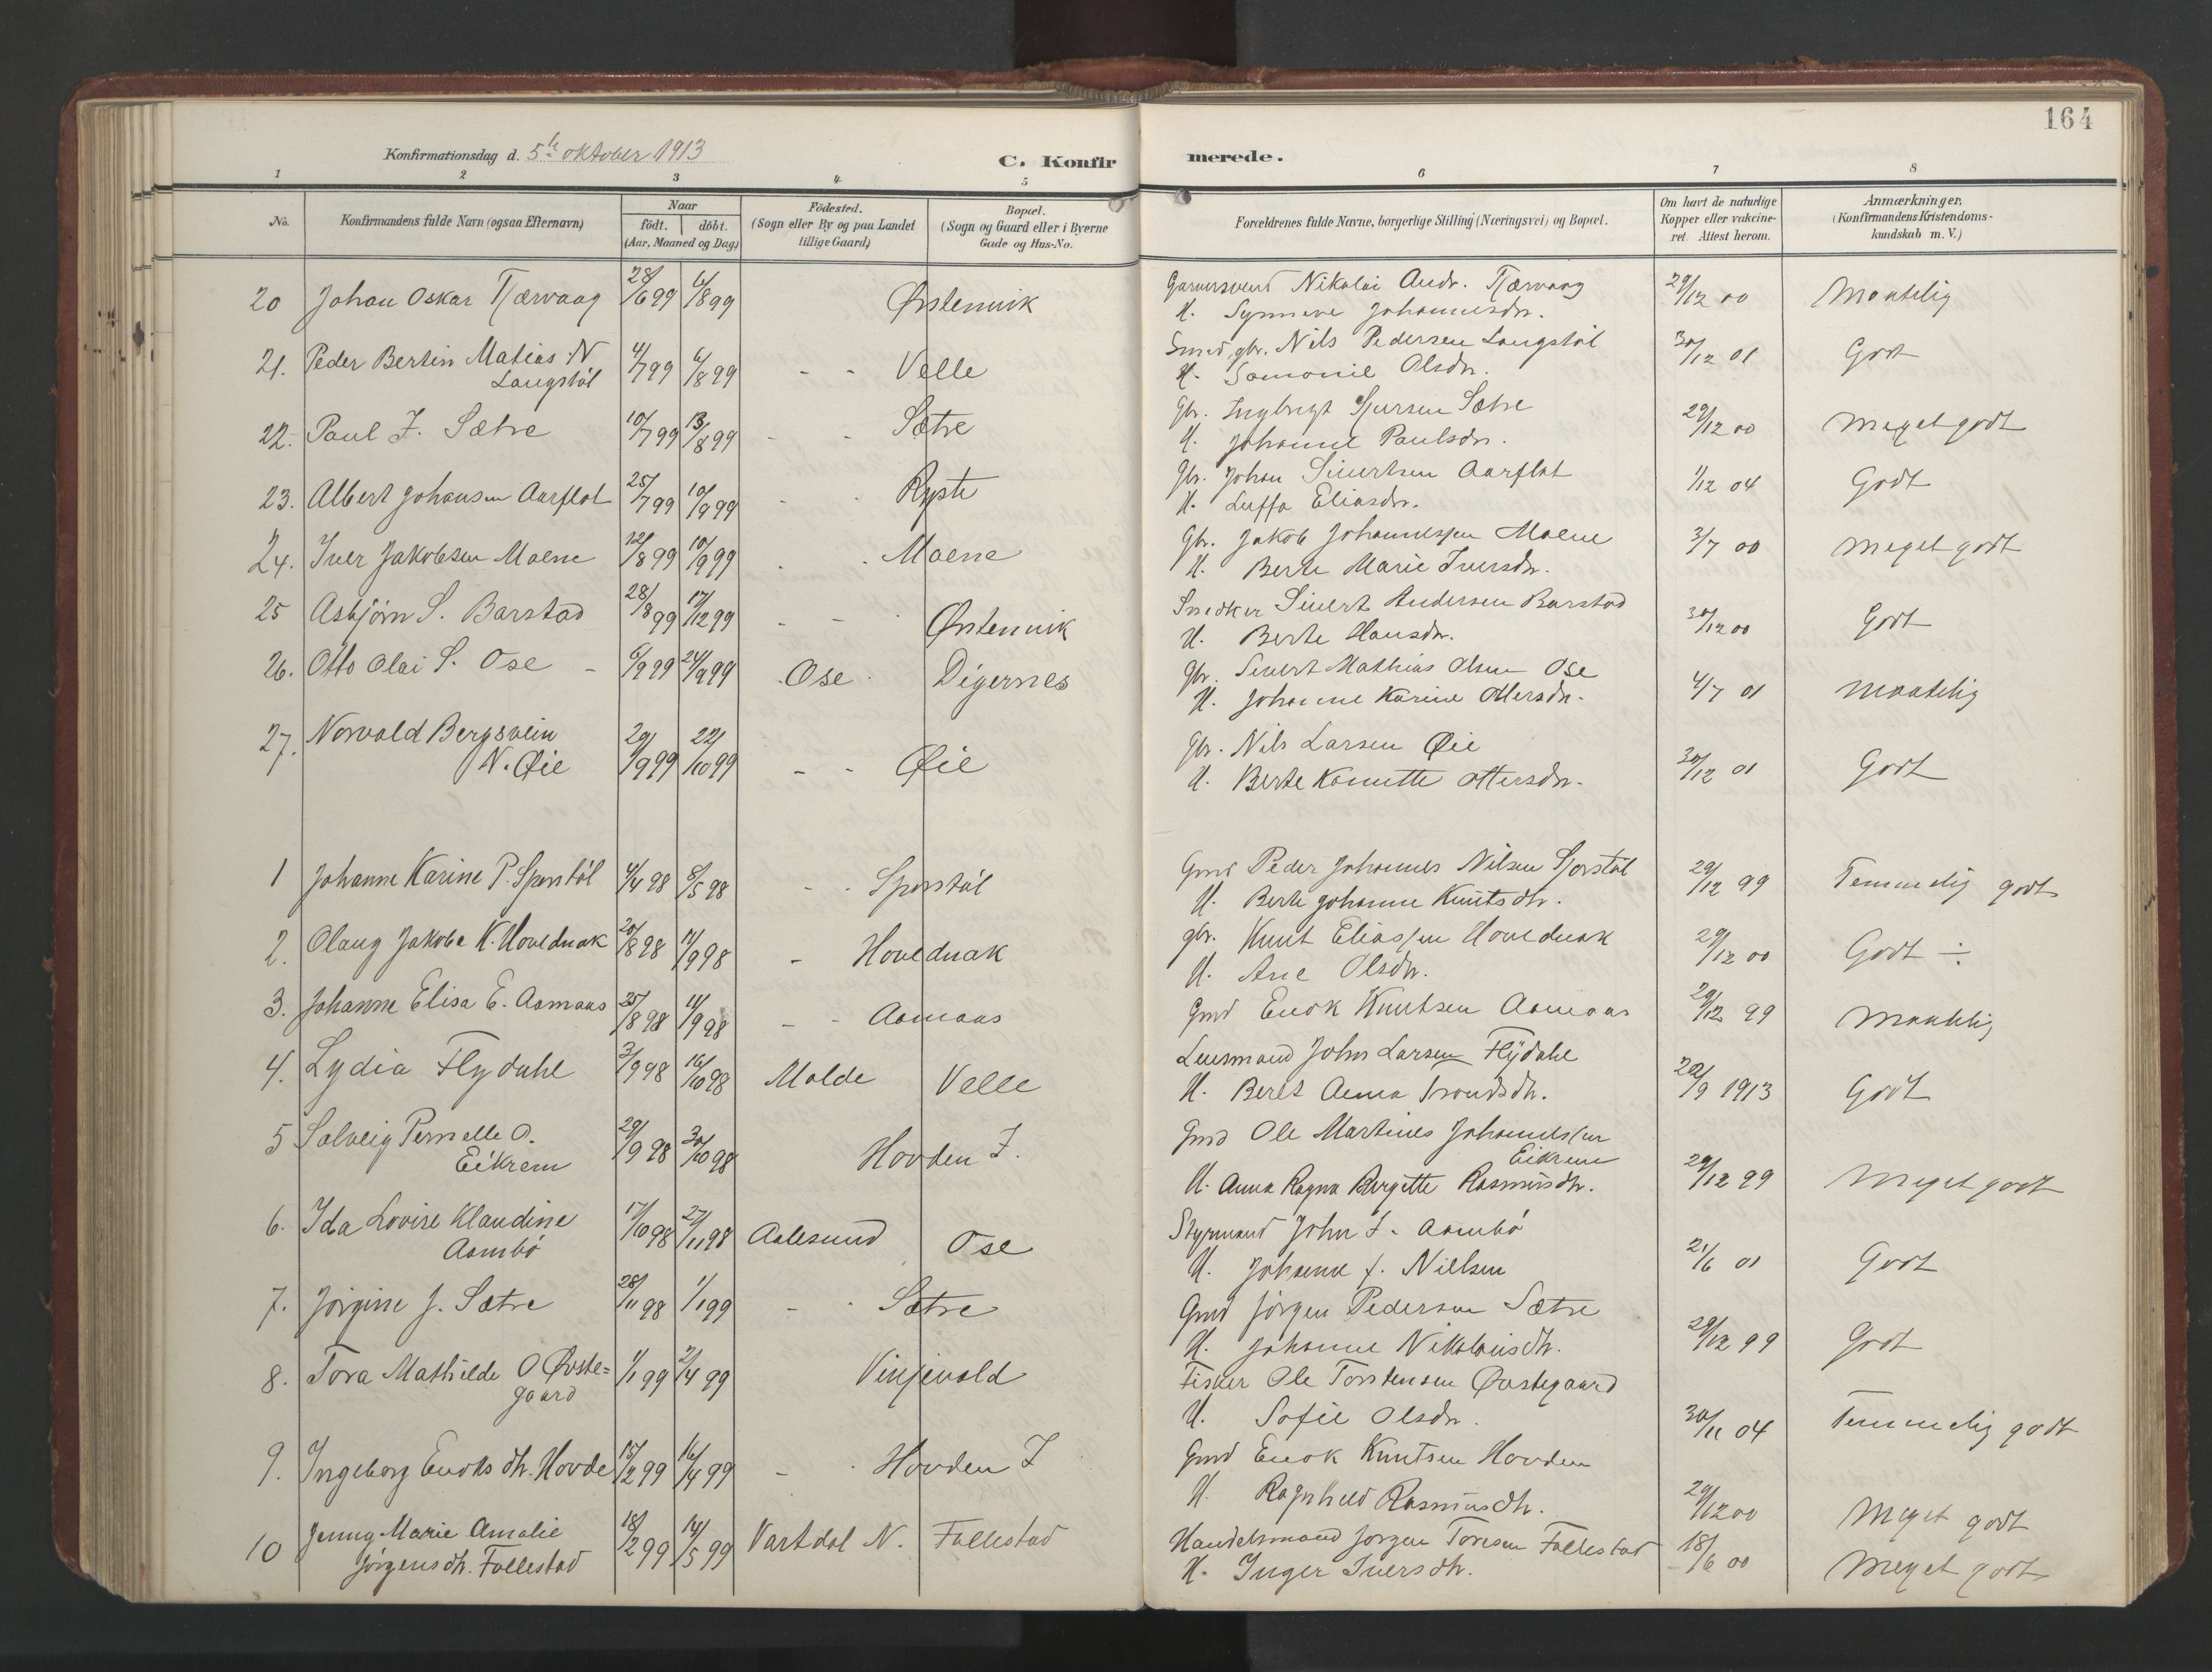 164
Konfirmationsdag d. 5te oktober 1913
C. Konfirmerede.
1 2 3 4 5 6 7 8
No.
Konfirmandens fulde Navn (ogsaa Efternavn)
Naar
födt. döbt.
(Aar, Maaned og Dag)
Födested.
(Sogn eller By og paa Landet
tillige Gaard)
Bopæl.
(Sogn og Gaard eller i Byerne
Gade og Hus-No.
Forældrenes fulde Navne, borgerlige Stilling (Næringsvei) og Bopæl.
Om havt de naturlige
Kopper eller vakcine-
ret. Attest herom.
Anmærkninger,
(Konfirmandens Kristendoms-
kundskab m. V.)
20 Johan Oskar Tjærvaag 28/6 99 6/8 99 Østenvik Garversvend Nikolai Andr. Tjærvaag 29/12 00 Maatelig
H. Synneve Johannesdr.
21. Peder Bertin Matias N. 4/7 99 6/8 99 - - Velle Smed, gbr. Nils Pedersen Langstöl 30/12 01 Godt
Langstöl H. Samonie Olsdr.
22. Paul I. Sætre 10/7 99 13/8 99 - - Sætre Gbr. Ingbrigt Sjursen Sætre 29/12 00 Meget godt
H. Johanne Paulsdr.
23. Albert Johansen Aarflot 25/7 99 10/9 99 - - Ryste Gbr. Johan Sivertsen Aarflot 1/12 04 Godt
H. Luffa Eliasdr.
24. Iver Jakobsen Moene 12/8 99 10/9 99 - - Moene Gbr. Jakob Johannessen Moene 3/7 00 Meget godt
H. Berte Marie Iversdr.
25 Asbjörn S. Barstad 28/8 99 17/12 99 - - Østenvik Snedker Sivert Andersen Barstad 30/12 00 Godt
H. Berte Hansdr.
26. Otto Olai S. Ose - 6/9 99 24/9 99 Ose Digernes Gbr. Sivert Mathias Olsen Ose 4/7 01 Maatelig
H. Johanne Karine Ottersdr.
27. Norvald Bergsvein 29/9 99 22/10 99 - - Øie Gbr. Nils Larsen Øie 30/12 01 Godt
N. Øie H. Berte Kanutte Ottersdr.
1 Johanne Karine P. Sporstöl 4/4 98 8/5 98 - - Sporstöl Gmd Peder Johannes Nilsen Sporstöl 29/12 99 Temmelig godt
H. Berte Johanne Knutsdtr.
2. Olaug Jakobe K. Hovednak 20/8 98 11/9 98 - Hovednak Gbr. Knut Eliassen Hovednak 29/12 00 Godt ÷
H. Ane Olsdr.
3. Johanne Elisa E. Aamaas 25/8 98 11/9 98 - - Aamaas Gmd Enok Knutsen Aamaas 29/12 99 Maatelig
4. Lydia Flydahl 3/9 98 16/10 98 Molde Velle Lensmand John Larsen Flydahl 20/9 1913 Godt
H. Beret Anna Trondsdtr.
5 Solveig Pernelle O. 29/9 98 30/10 98 Hovden I. Gmd Ole Martines Johannessen
Eikrem Eikrem
H. Anna Ragna Bergitte Rasmusdtr. 29/12 99 Meget godt
6. Ida Lovise Klaudine 17/10 98 27/11 98 Aalesund Ose Styrmand John I. Aambö
Aambö H. Johanna f. Nielsen 21/6 01 Godt
7. Jörgine J. Sætre 28/11 98 1/1 99 - - Sætre Gmd Jörgen Pedersen Sætre 29/12 99 Godt
H. Johanne Nikolaisdtr.
8. Tora Mathilde O Øvste= 1/1 99 2/4 99 Vinjevold Fisker Ole Torstensen Øvstegaard
gaard H. Sofie Olsdr. 30/11 04 Temmelig godt
9. Ingeborg Enoksdtr. Hovde 15/2 99 16/4 99 - Hovden I Gmd Enok Knutsen Hovden
H. Ragnhild Rasmusdtr. 29/12 00 Meget godt
10 Jenny Marie Amalie 18/2 99 14/5 99 Vartdal N. Follestad Handelsmand Jörgen Toresen Follestad 18/6 00 Meget godt
Jörgensdtr. Follestad H. Inger Iversdtr.